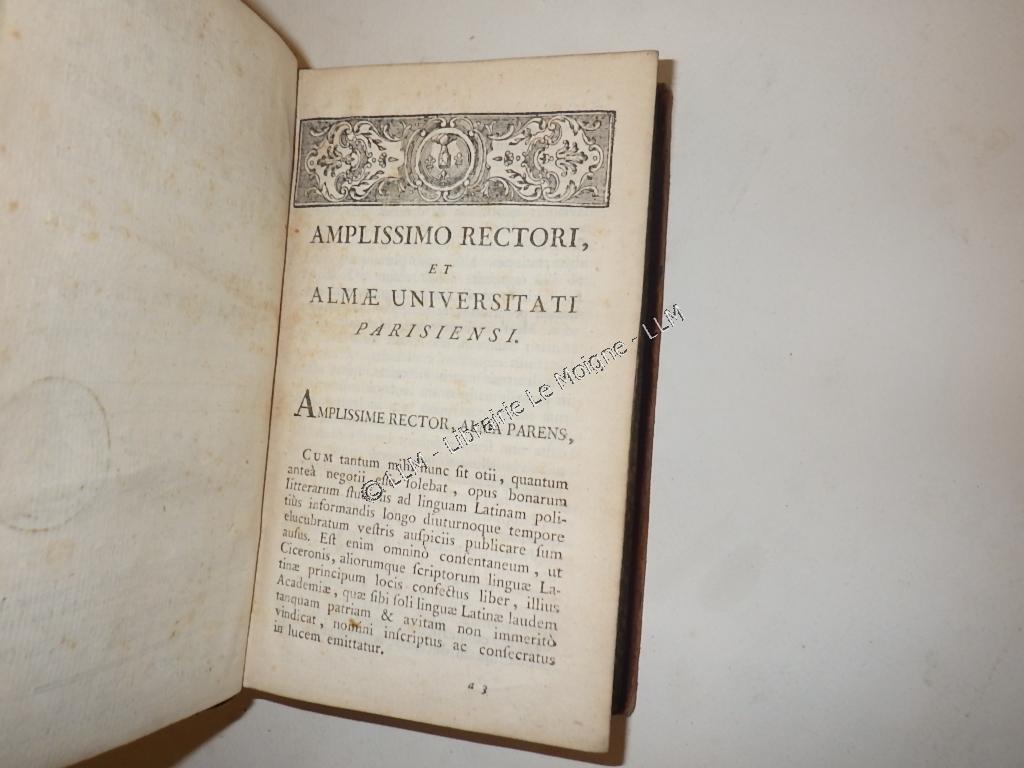 AMPLISSIMO RECTORI,
ET
ALMÆ UNIVERSITATI
PARISIENSI.
AMPLISSIME RECTOR, ALMA PARENS,
CUM tantum mihi nunc ſit otii, quantum
anteà negotii eſſe ſolebat, opus bonarum
litterarum ſtudioſis ad linguam Latinam poli-
tiùs informandis longo diuturnoque tempore
elucubratum veſtris auſpiciis publicare ſum
auſus. Eſt enim omninò conſentaneum, ut
Ciceronis, aliorumque ſcriptorum linguæ La-
tinæ principum locis confectus liber, illius
Academiæ, quæ ſibi ſoli linguæ Latinæ laudem
tanquam patriam & avitam non immeritò
vindicat, nomini inſcriptus ac conſecratus
in lucem emittatur.
a 3
© LLM - Librairie Le Moigne - LLM